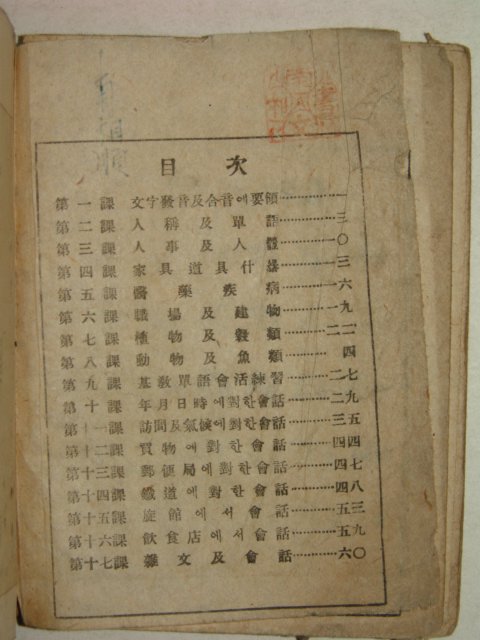 目次
第一課 文字發音及合音에要領…………一
第二課 人稱及單語…………三
第三課 人事及人體…………一〇
第四課 家具道具什器…………一三
第五課 醫藥疾病…………一六
第六課 職場及建物…………一九
第七課 植物及穀類…………二二
第八課 動物及魚類…………四
第九課 基數單語會活練習…………二七
第十課 年月日時에對한會話…………二九
第十一課 訪問及氣候에對한會話…………三五
第十二課 買物에對한會話…………四四
第十三課 郵便局에對한會話…………四七
第十四課 鐵道에對한會話…………四八
第十五課 旅館에서會話…………五三
第十六課 飮食店에서會話…………五九
第十七課 雜文及會話…………六〇